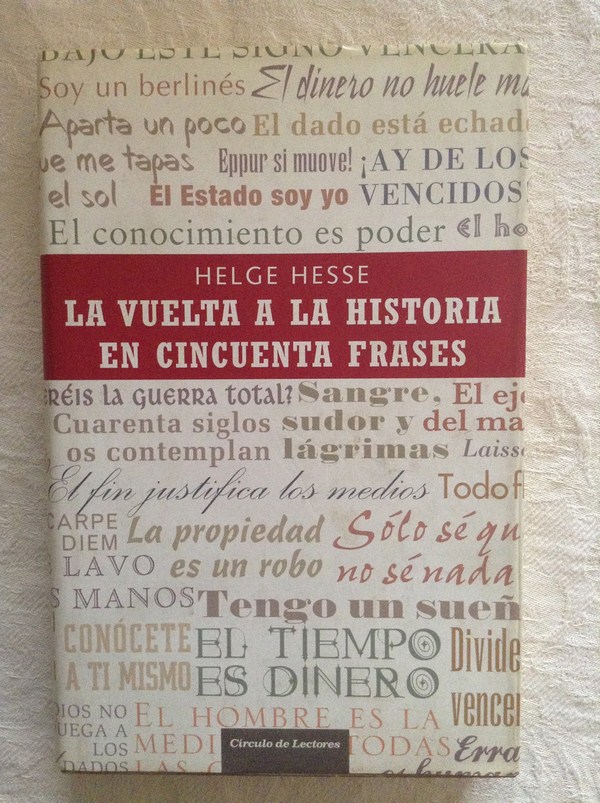 BAJO ESTE SIGNO VENCERÁ
Soy un berlinés El dinero no huele ma
Aparta un poco El dado está echad
ue me tapas Eppur si muove! ¡AY DE LOS
el sol El Estado soy yo VENCIDOS!
El conocimiento es poder El ho
HELGE HESSE
LA VUELTA A LA HISTORIA
EN CINCUENTA FRASES
réis la guerra total? Sangre, El eje
Cuarenta siglos sudor y del ma
os contemplan lágrimas Laisse
El fin justifica los medios Todo fl
CARPE DIEM La propiedad Sólo sé qu
LAVO es un robo no sé nada
S MANOS Tengo un sueñ
CONÓCETE EL TIEMPO Divide
A TI MISMO ES DINERO vencer
DIOS NO EL HOMBRE ES LA
UEGA A MEDI TODAS Erra
LOS DADOS LAS es human
Círculo de Lectores